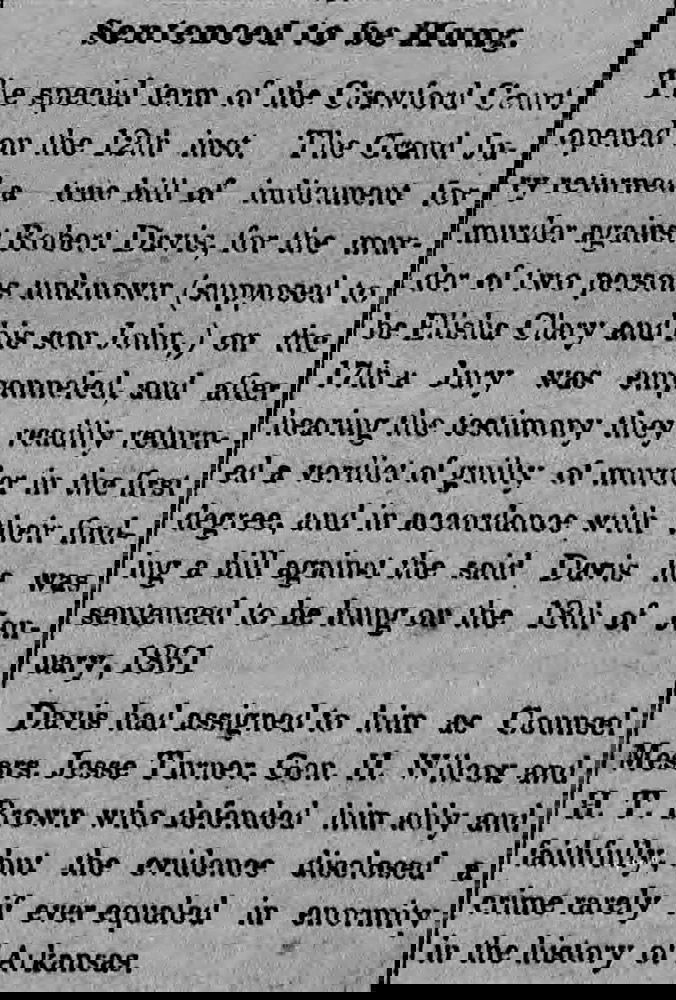 Sentenced to be Hung.
The special term of the Crawford Court
opened on the 12th inst. The Grand Ju-
ry returned a true bill of indictment for
murder against Robert Davis, for the mur-
der of two persons unknown (supposed to
be Elisha Clary and his son John,) on the
17th a Jury was empanneled, and after
hearing the testimony they readily return-
ed a verdict of guilty of murder in the first
degree, and in accordance with their find-
ing a bill against the said Davis he was
sentenced to be hung on the of Jan-
uary, 1861
Davis had assigned to him as Counsel
Messrs. Jesse Turner, Geo. H. Wilcox and
H. T. Brown who defended him ably and
faithfully, but the evidence disclosed a
crime rarely if ever equaled in enormity
in the history of Arkansas.